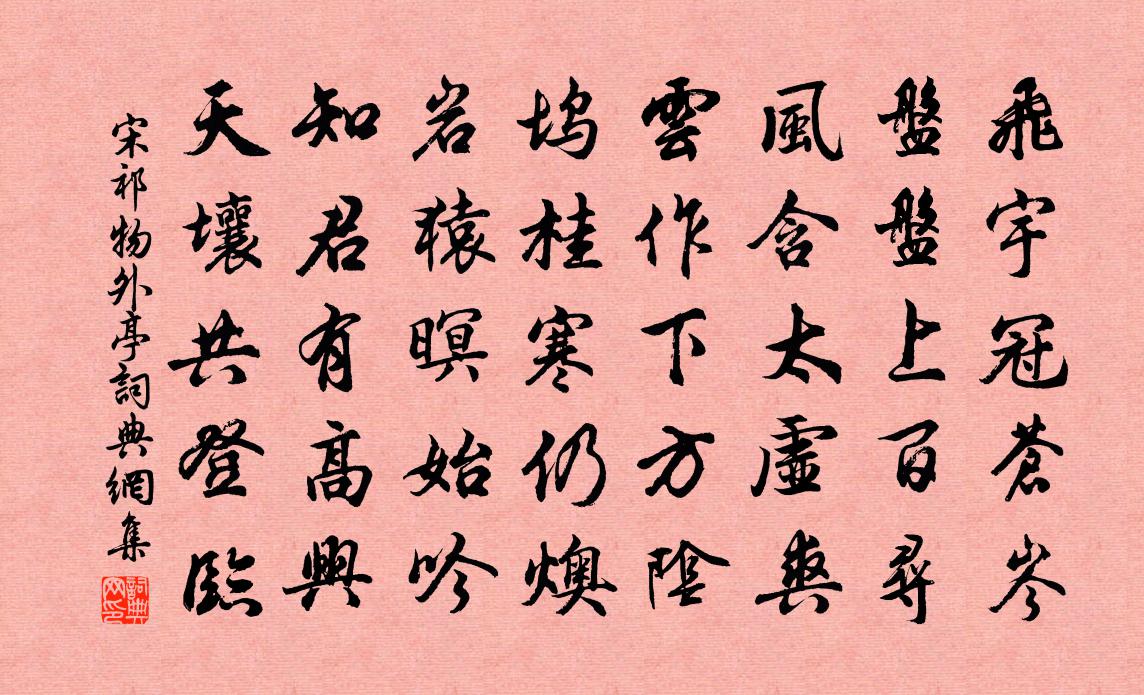 飛宇冠蒼岑
盤盤上百尋
風含太虛爽
雲作下方陰
塢桂寒仍燠
岩猿暝始吟
知君有高興
天壤共登臨
宋祁物外亭詞典網集
詞典網印